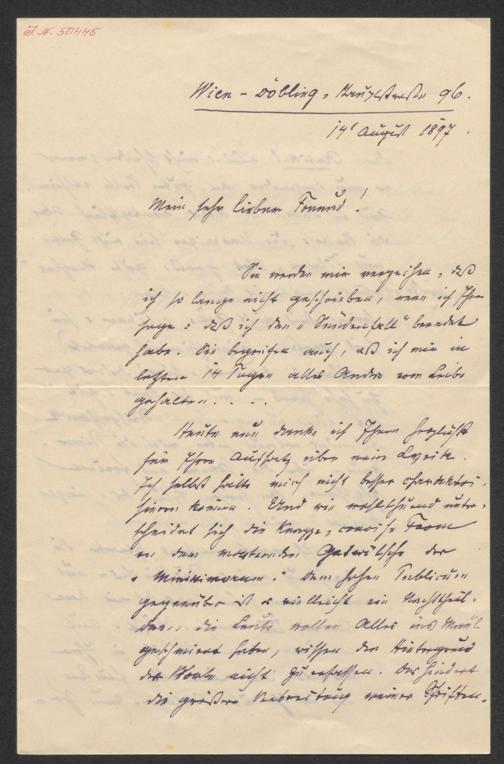 J.N. 50445
Wien – Döbling, 96.
14t August 1897.
Mein sehr lieber Freund!
Sie werden mir verzeihen, daß
ich so lange nicht geschrieben, wenn ich Ihnen
sage: daß ich den „Sündenfall“ beendet
habe. Sie begreifen auch, daß ich mir in
letzten 14 Tagen alles Andre vom Leibe
gehalten. . . .
Heute nun danke ich Ihnen herzlichst
für Ihren Aufsatz über mein Lyrik.
Ich selbst hätte mich nicht besser charakteri-
siren können. Und wie wohlthuend unter-
scheidet sich die knappe, concise Form
von dem Gedwätsche der
. Dem hohen Publicum
gegenüber ist es vielleicht ein Nachtheil.
Denn die Leute wollen Alles ins Maul
geschmiert haben, wissen den Hintergrund
der Worte nicht zu erfassen. Das hindert
die größere Verbreitung meiner Schriften.